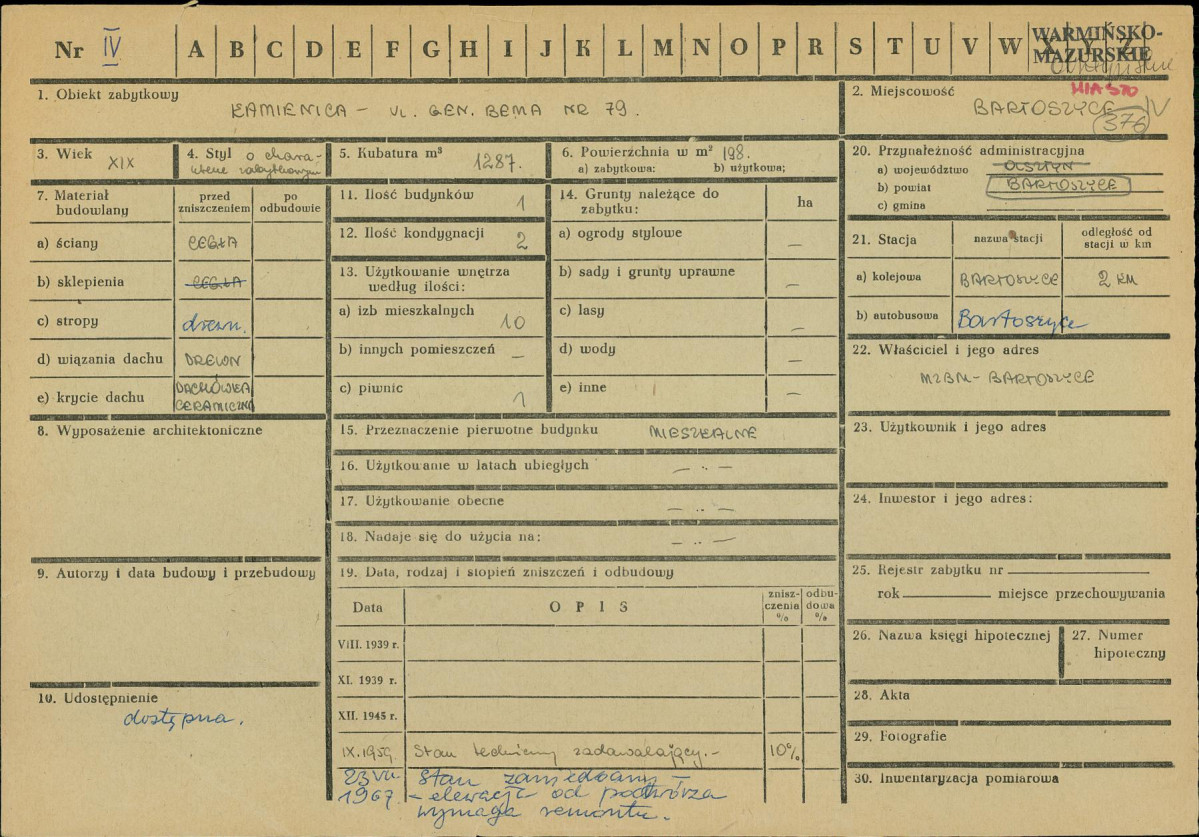 Nr IV A B C D E F G H I J K L M N O P R S T U V W X Y Z
WARMIŃSKO-
MAZURSKIE
1. Obiekt zabytkowy
KAMIENICA – UL. GEN. BEMA NR 79.
2. Miejscowość
MIASTO
BARTOSZYCE IV
376
3. Wiek
XIX
4. Styl o chara-
kterze zabytkowym
5. Kubatura m³
1287.
6. Powierzchnia w m² 198.
a) zabytkowa: b) użytkowa:
7. Materiał
budowlany
przed
zniszczeniem
po
odbudowie
a) ściany CEGŁA
b) sklepienia CEGŁA
c) stropy drewn.
d) wiązania dachu DREWN
e) krycie dachu DACHÓWKA
CERAMICZNA
8. Wyposażenie architektoniczne
9. Autorzy i data budowy i przebudowy
10. Udostępnienie
dostępna.
11. Ilość budynków 1
12. Ilość kondygnacji 2
13. Użytkowanie wnętrza
według ilości:
a) izb mieszkalnych 10
b) innych pomieszczeń –
c) piwnic 1
14. Grunty należące do
zabytku:
ha
a) ogrody stylowe –
b) sady i grunty uprawne –
c) lasy –
d) wody –
e) inne –
15. Przeznaczenie pierwotne budynku MIESZKALNE
16. Użytkowanie w latach ubiegłych – .. –
17. Użytkowanie obecne – .. –
18. Nadaje się do użycia na: – .. –
19. Data, rodzaj i stopień zniszczeń i odbudowy
Data OPIS
znisz-
czenia
%
odbu-
dowa
%
VIII. 1939 r.
XI. 1939 r.
XII. 1945 r.
IX.1959. Stan techniczny zadawalający.– 10%
23 VII. Stan zaniedbany –
1967. – elewacja od podwórza
wymaga remontu.
20. Przynależność administracyjna
a) województwo OLSZTYN
b) powiat BARTOSZYCE
c) gmina
21. Stacja
nazwa stacji
odległość od
stacji w km
a) kolejowa BARTOSZYCE 2 KM
b) autobusowa Bartoszyce
22. Właściciel i jego adres
MZBM – BARTOSZYCE
23. Użytkownik i jego adres
24. Inwestor i jego adres:
25. Rejestr zabytku nr
rok miejsce przechowywania
26. Nazwa księgi hipotecznej
27. Numer
hipoteczny
28. Akta
29. Fotografie
30. Inwentaryzacja pomiarowa